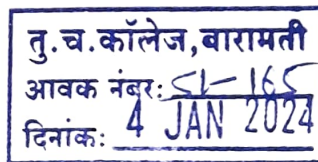 तु.च.कॉलेज,बारामती
आवक नंबर:
दिनांक: 4 JAN 2024